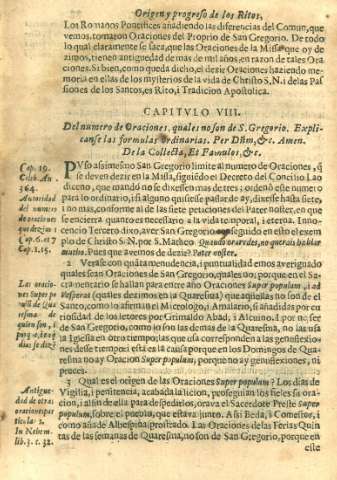 Origen y progreso de los Ritos.
Los Romanos Pontifices añadiendo las diferencias del Comun, que
vemos, tomaron Oraciones del Proprio de San Gregorio. De todo
lo qual claramente se saca, que las Oraciones de la Missa que oy de
zimos, tienen antiguedad de mas de mil años, en razon de tales Ora
ciones. Si bien, como queda dicho, el dezir Oraciones haziendo me-
moria en ellas de los mysterios de la vida de Christo S. N. i de las Pas
siones de los Santos, es Rito, i Tradicion Apostolica.
CAPITVLO VIII.
Del numero de Oraciones, quales no son de S. Gregorio. Expli-
canse las formulas ordinarias. Per Dñm, &c. Amen.
De la Collecta, Et Famulos, &c.
Cap. 19.
364.
Autoridad
del numero
de oraciones
que dezim 9
C p. 6. n 7
Cap. 1. 15.
PVso assimesmo San Gregorio limite al numero de Oraciones, q̃
se deven dezir en la Missa, siguiẽdo el Decreto del Concilio Lao
diceno, que mandò no se dixessen mas de tres; ordenò este numero
para lo ordinario, i si alguno quisiesse passar de ay, dixesse hasta siete,
i no mas, conforme al de las siete peticiones del Pater noster, en que
se encierra quanto es necessario a la vida temporal, i eterna. Inno-
cencio Tercero dixo, aver San Gregorio seguido en esto el exem-
plo de Christo S. N. por S. Matheo. Quando oraredes, no querais hablar
mucho. Pues que avemos de dezir? Pater noster.
Las oracio
nes Super po
pulo de Qua
resma de
quien son, i
porq̃ de
dõ se dizẽ
2 Verase con quãta menudencia, i puntualidad emos averiguado
quales sean Oraciones de San Gregorio, quales no; porque en el Sa-
cramentario se hallan para entre año Oraciones Super populum, i ad
Vesperas (quales dezimos en la Quaresma) que aquellas no son de el
Santo, como lo afirman el Micrologo, i Amalario, si añadidos por cu
riosidad de los letores por Grimoldo Abad, i Alcuino. I por no ser
de San Gregorio, como lo son las demas de la Quaresma, no las usa
la Iglesia en otro tiempo; las que usa corresponden a las genuflexio-
nes deste tiempo: i esta es la causa porque en los Domingos de Qua-
resma no ay Oracion Super populum, porque no ay genuflexiones, ni
preces.
Antigue-
dad de otras
oraciones que
se dicen. 2.
In Nehem.
lib. 3. c. 32.
3 Qual es el origen de las Oraciones Super populum? Los dias de
Vigilia, i penitencia, acabada la licion, proseguian los fieles su ora-
cion, i al fin de ella para despedirlos, orava el Sacerdote Preste Super
populum, sobre el pueblo, que estava junto. Assi Beda, i Comestor, i
como añade Albespiña prostrado. Las Oraciones de las Ferias Quin
tas de las semanas de Quaresma, no son de San Gregorio, porque en
este